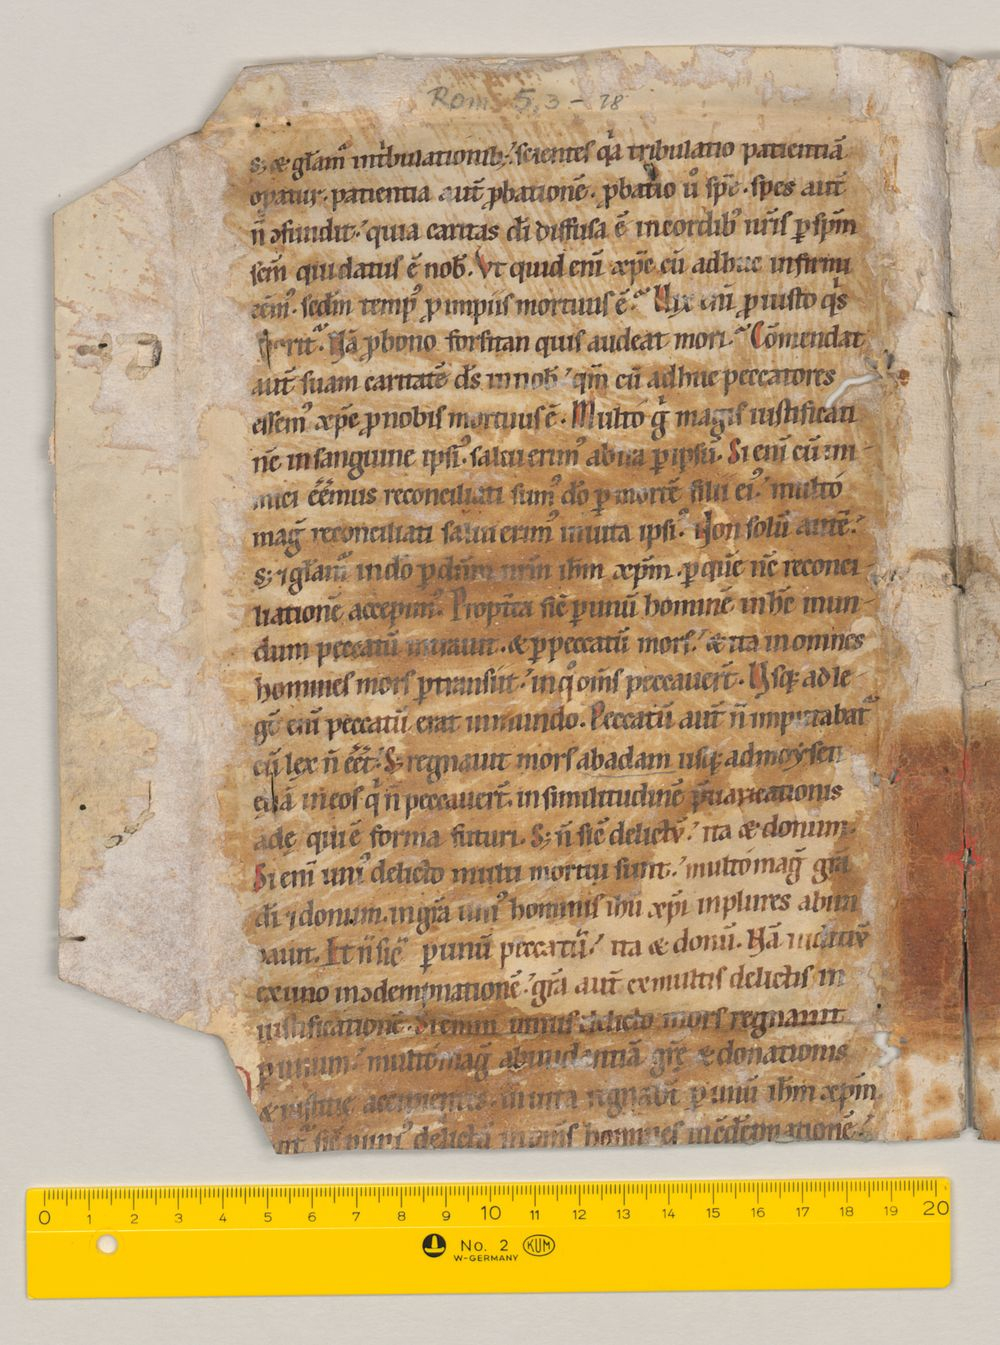 Rom 5,3-18
s; & gl̄am᷒ intͥbulationib;. scientes qͥa tribulatio patientiā
opatur. patientia aut̄ ꝓbationē. ꝓbatio ů spē. spes aut̄
n̄ ꝯfundit. quia caritas dī diffusa ē incordib᷒ nr̄is ꝑ sp̄m
sc̄m qui datus ē nob̄. Vt quid eni᷒ xp̄c cū adhuc infirmi
eēm᷒. sc̄dm temp᷒ ꝓ impiis mortuus ē. Uix eni᷒ ꝓ iusto qͥs
Nā ꝓbono forsitan quis audeat mori. Cōmendat
aut̄ suam caritatē d̄s in nob̄. qm̄ cū adhuc peccatores
essem᷒ xp̄c ꝓ nobis mortuus ē. Multo g̊ magis iustificati
nc̄ in sanguine ipsi᷒. salui erim᷒ abira ꝑ ipsū. Si eni᷒ cū in-
imici eēmus reconciliati sum᷒ dō ꝑ mortē filii ei᷒. multo
mag̃ reconciliati salui erim᷒ inuita ipsi᷒. Non solū aut̄.
s; ⁊ gl̄am᷒ in dō ꝑ dn̄m nr̄m ih̄m xp̄m. ꝑ quē nc̄ reconci
liationē accepim᷒. Propt̄ea sic̄ ꝑ unū hominē in hc̄ mun-
dum peccatū intrauit. & ꝑ peccatū mors. & ita in omnes
homines mors ꝑtransiit. in qͦ om̄s peccauer̄t. Usq; ad le-
gē eni᷒ peccatū erat in mundo. Peccatū aut̄ n̄ imputabat᷑
cū lex n̄ eēt. S; regnauit mors abadam usq; admoysen
etiā in eos qͥ n̄ peccauer̄t. in similitudinē p̄uaricationis
adę qui ē forma futuri. S; n̄ sic̄ delictū. ita & donum.
Si eni᷒ uni᷒ delicto multi mortui sunt. multomag̃ gr̄a
dī ⁊ donum. in gr̄a uni᷒ hominis ih̄u xp̄i in plures abun
dauit. Et n̄ sic̄ ꝑ unū peccatū. ita & donū. Nā iudiciū
ex uno in ꝯdempnationē. gr̄a aut̄ ex multis delictis in
iustificationē. Si enim unius delicto mors regnauit
ꝑ unum. multomag̃ abundantiā grę̄ & donationis
& iustitie accipientes. in uita regnab̄t ꝑ unū ih̄m xp̄m.
sic̄ ꝑ uni᷒ delictū in om̄s homines in ꝯdēpnationē
0 1 2 3 4 5 6 7 8 9 10 11 12 13 14 15 16 17 18 19 20
No. 2 KUM
W-GERMANY